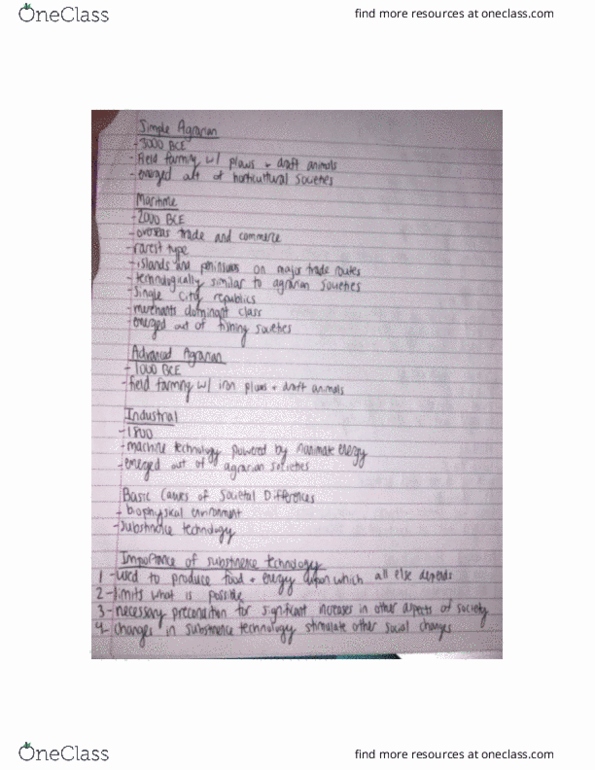 OneClass
find more resources at oneclass.com
Simple Agrarian
-3000 BCE
-field farming w/ plows + draft animals
-emerged out of horticultural societies
Maritime
-2000 BCE
-overseas trade and commerce
-rarest type
-islands and peninsulas on major trade routes
-technologically similar to agrarian societies
-single city republics
-merchants dominant class
-emerged out of fishing societies
Advanced Agrarian
-1000 BCE
-field farming w/ iron plows + draft animals
Industrial
-1800
-machine technology powered by inanimate energy
-emerged out of agrarian societies
Basic Causes of Societal Differences
-biophysical environment
-subsistence technology
Importance of subsistence technology
1 -used to produce food + energy upon which all else depends
2 -limits what is possible
3 -necessary precondition for significant increases in other aspects of society
4 -changes in subsistence technology stimulate other social changes
OneClass
find more resources at oneclass.com